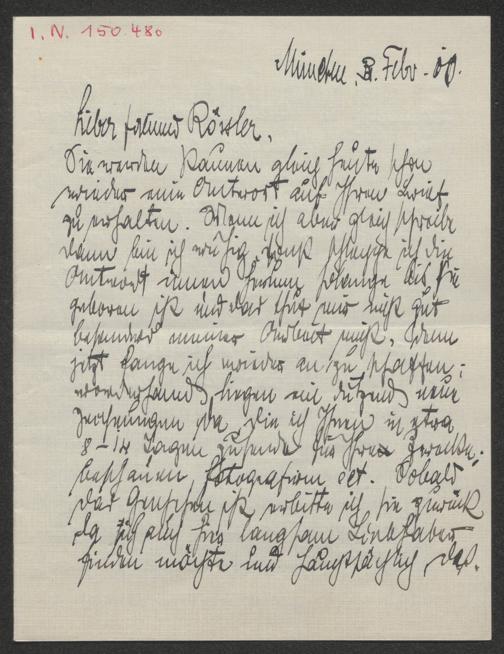 I.N. 150.480
München, 3. Febr. 
Lieber Freund Rössler,
Sie werden staunen gleich heute schon
wieder eine Antwort auf Ihren Brief
zu erhalten. Wenn ich aber gleich schreibe
dann bin ich ruhig, sonst schleppe ich die
Antwort innen herum solange bis sie
geboren ist und das thut mir nicht gut
besonders meiner Arbeit nicht. Denn
jetzt fange ich wieder an zu schaffen:
vorderhand liegen ein dutzend neue
Zeichnungen da, die ich Ihnen in etra
8-14 Tagen zusende für Ihre Zwecke:
beschauen, fotografiren ect. Sobald
das geschehen ist erbitte ich sie zurück
da ich auch hier langsam Liebhaber
finden möchte und hauptsächlich das.